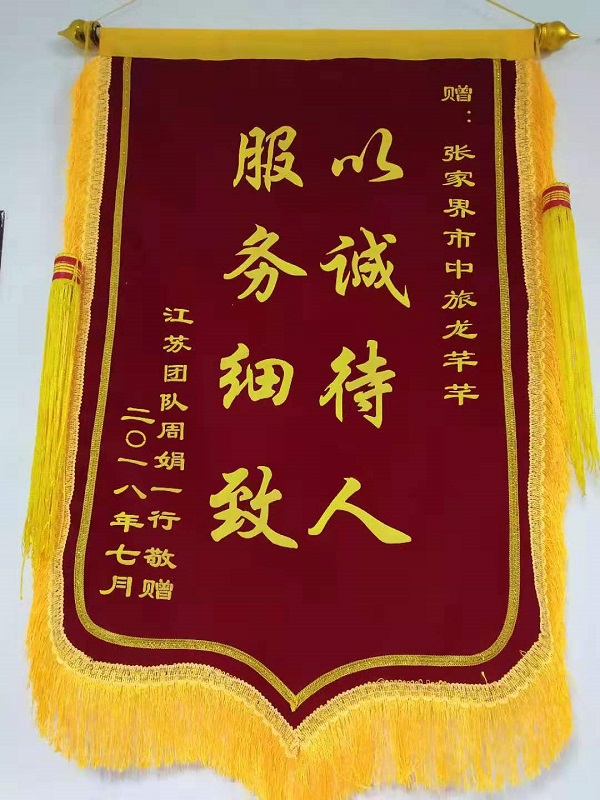 赠：张家界市中旅龙芊芊
以诚待人
服务细致
江苏团队周娟一行敬赠
二〇一八年七月